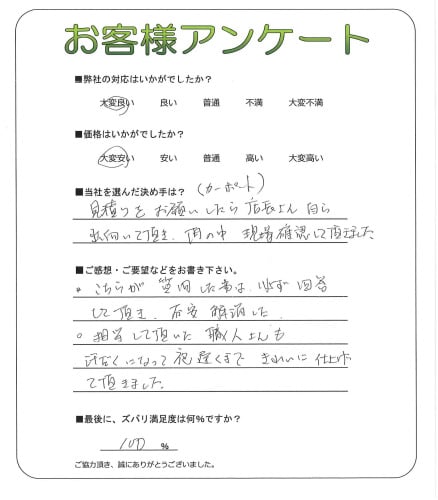 お客様アンケート
■弊社の対応はいかがでしたか?
大変良い 良い 普通 不満 大変不満
■価格はいかがでしたか?
大変安い 安い 普通 高い 大変高い
■当社を選んだ決め手は?
(カーポート)
見積りをお願いしたら店長さん自ら
出向いて頂き、雨の中 現場確認して頂きました
■ご感想・ご要望などをお書き下さい。
• こちらが質問した事は、必ず回答
して頂き、不安解消した。
○ 担当して頂いた職人さんも
汗だくになって夜遅くまできれいに仕上げ
て頂きました。
■最後に、ズバリ満足度は何%ですか?
100 %
ご協力頂き、誠にありがとうございました。